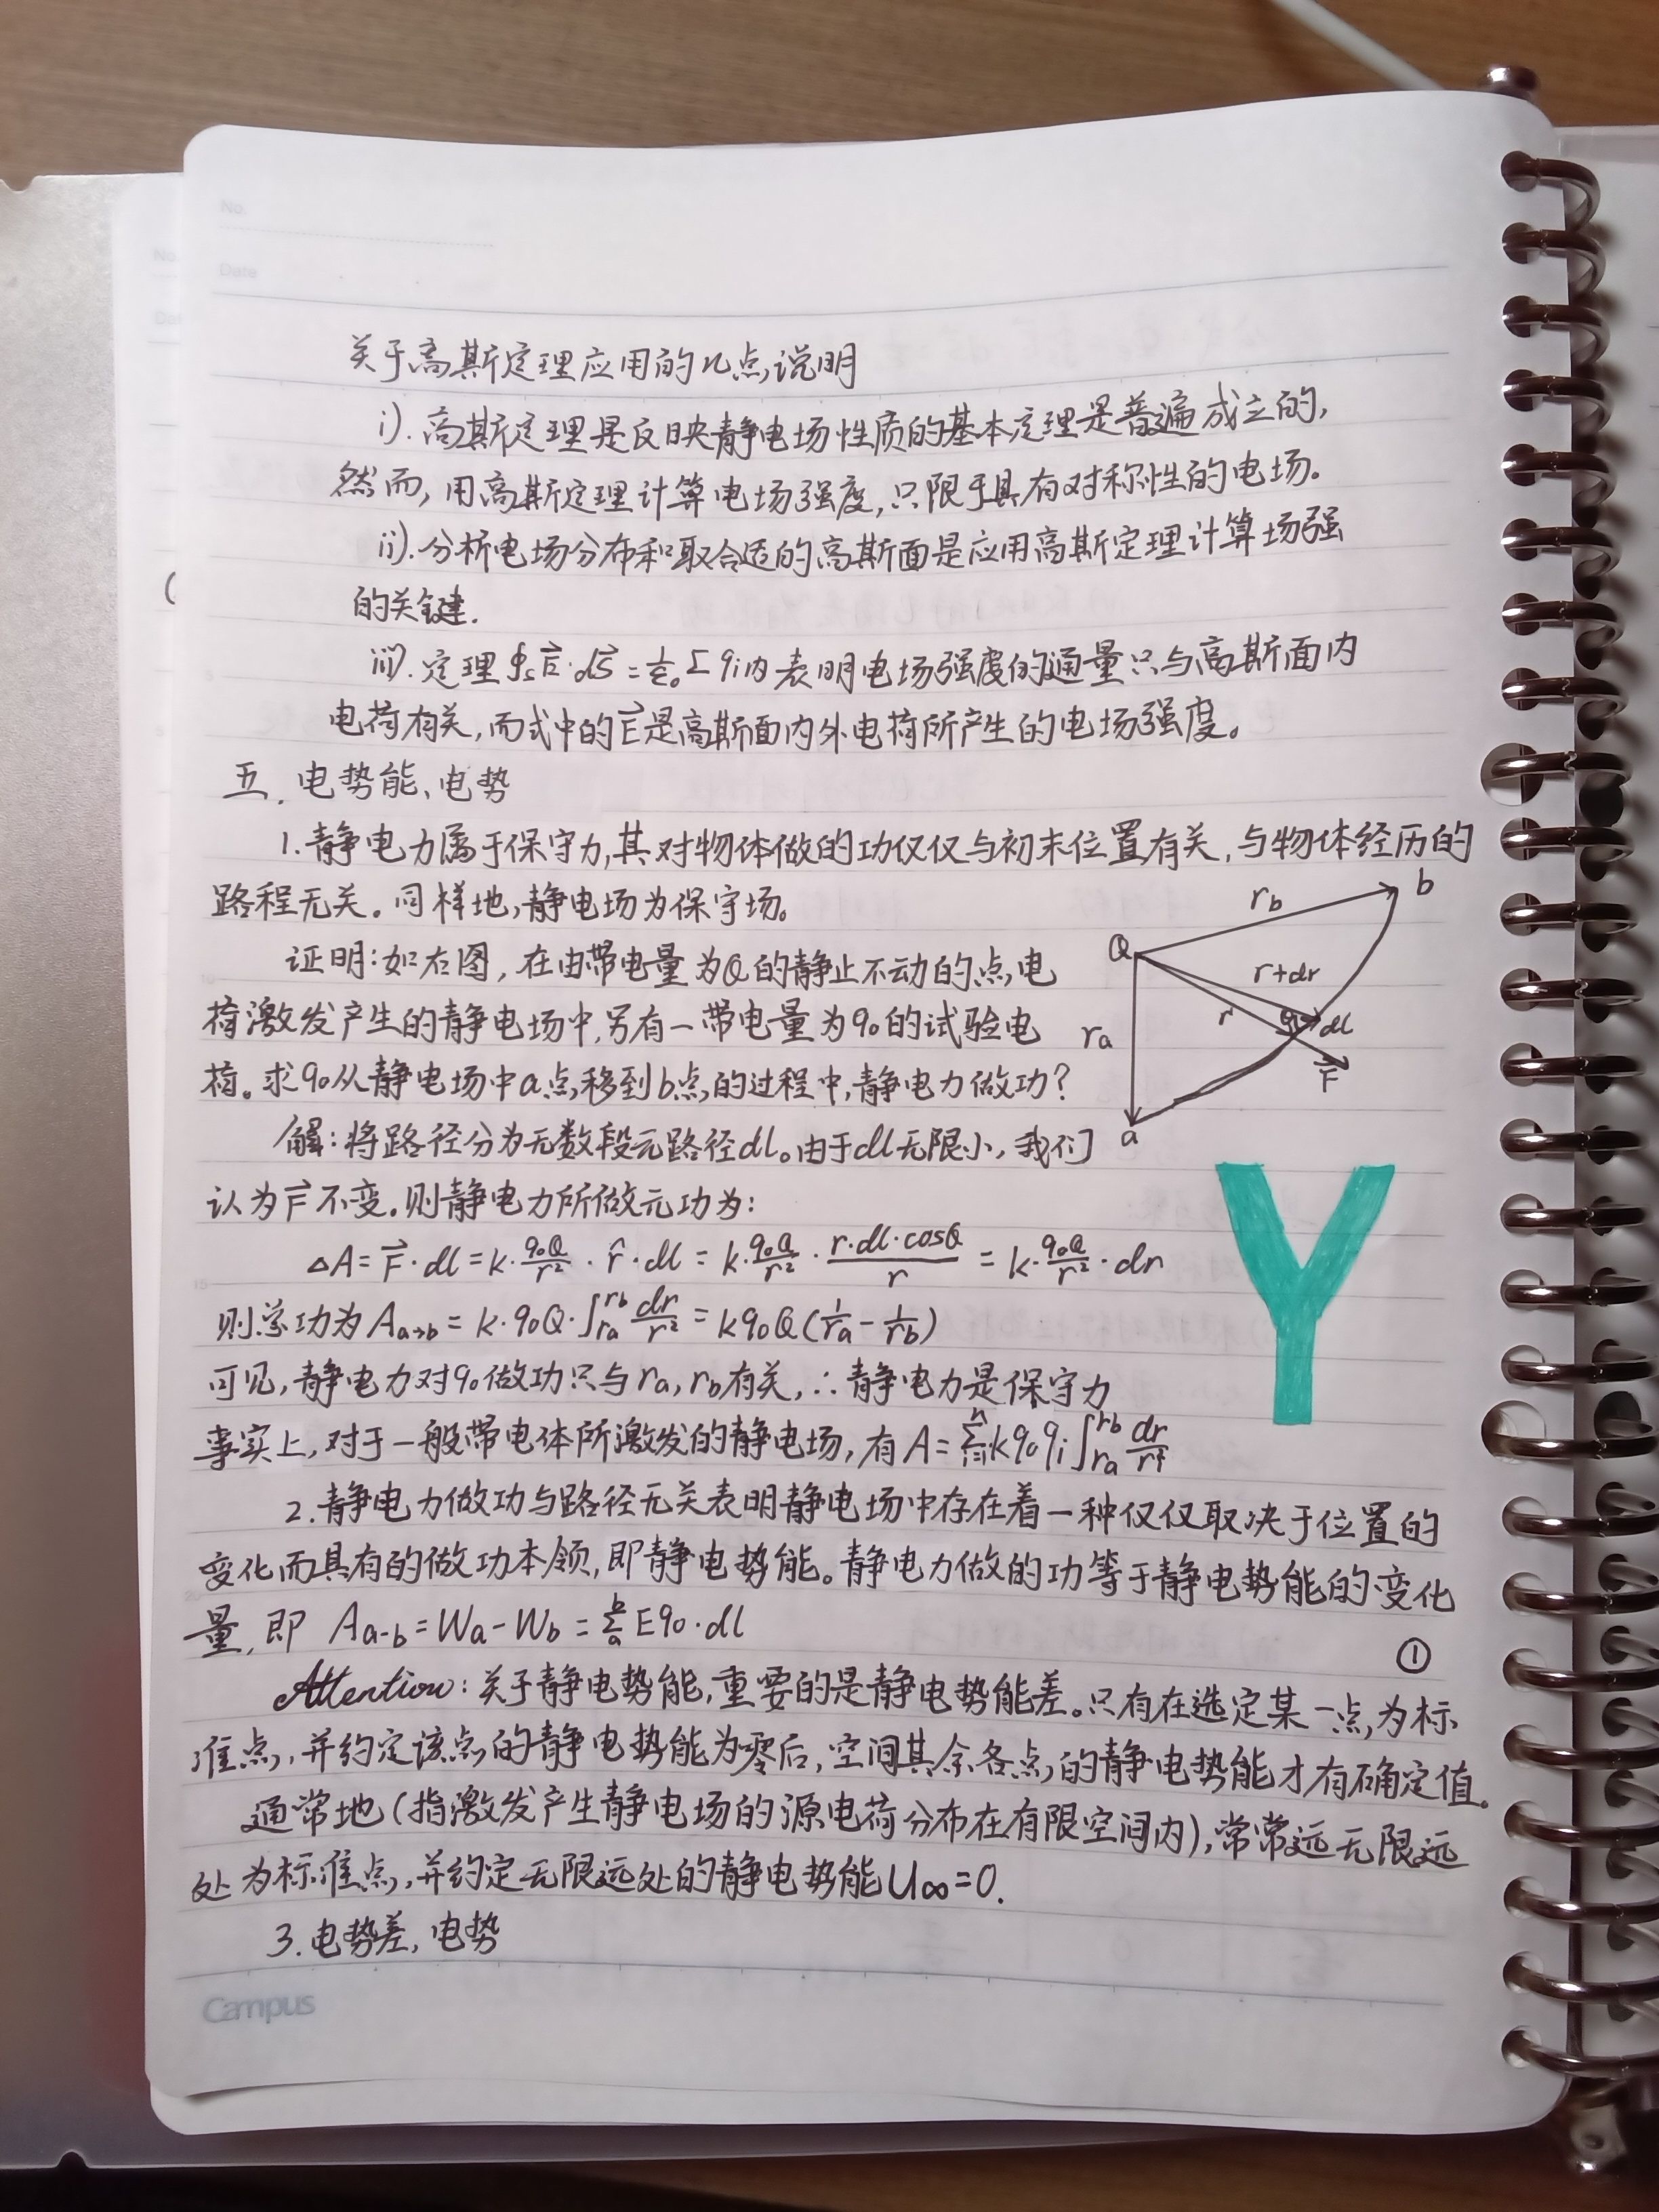 No.
Date
关于高斯定理应用的几点说明
i). 高斯定理是反映静电场性质的基本定理是普遍成立的,
然而, 用高斯定理计算电场强度, 只限于具有对称性的电场。
ii). 分析电场分布和取合适的高斯面是应用高斯定理计算场强
的关键.
iii). 定理 ∮s E⃗·dS⃗ = 1/ε₀ Σ qi内 表明电场强度的通量只与高斯面内
电荷有关, 而式中的E⃗是高斯面内外电荷所产生的电场强度。
五. 电势能、电势
1. 静电力属于保守力, 其对物体做的功仅仅与初末位置有关, 与物体经历的
路程无关。同样地, 静电场为保守场。
证明: 如右图, 在由带电量为Q的静止不动的点电
荷激发产生的静电场中, 另有一带电量为q₀的试验电
荷。求q₀从静电场中a点移到b点的过程中, 静电力做功?
解: 将路径分为无数段元路径dl。由于dl无限小, 我们
认为F⃗不变。则静电力所做元功为:
Q
rb
b
r+dr
r
θ
dl
F⃗
ra
a
ΔA = F⃗·dl = k·q₀Q/r²·r̂·dl = k·q₀Q/r²·r·dl·cosθ/r = k·q₀Q/r²·dr
则总功为 Aa→b = k·q₀Q·∫ra^rb dr/r² = kq₀Q(1/ra - 1/rb)
可见, 静电力对q₀做功只与ra, rb有关, ∴静电力是保守力
事实上, 对于一般带电体所激发的静电场, 有 A = Σ(i=1)^n kq₀qi ∫ra^rb dr/ri²
Y
2. 静电力做功与路径无关表明静电场中存在着一种仅仅取决于位置的
变化而具有的做功本领, 即静电势能。静电力做的功等于静电势能的变化
量, 即 Aa-b = Wa - Wb = Σa^b Eq₀·dl
①
Attention: 关于静电势能, 重要的是静电势能差。只有在选定某一点为标
准点, 并约定该点的静电势能为零后, 空间其余各点的静电势能才有确定值。
通常地(指激发产生静电场的源电荷分布在有限空间内), 常常远无限远
处为标准点, 并约定无限远处的静电势能U∞=0.
3. 电势差, 电势
Campus